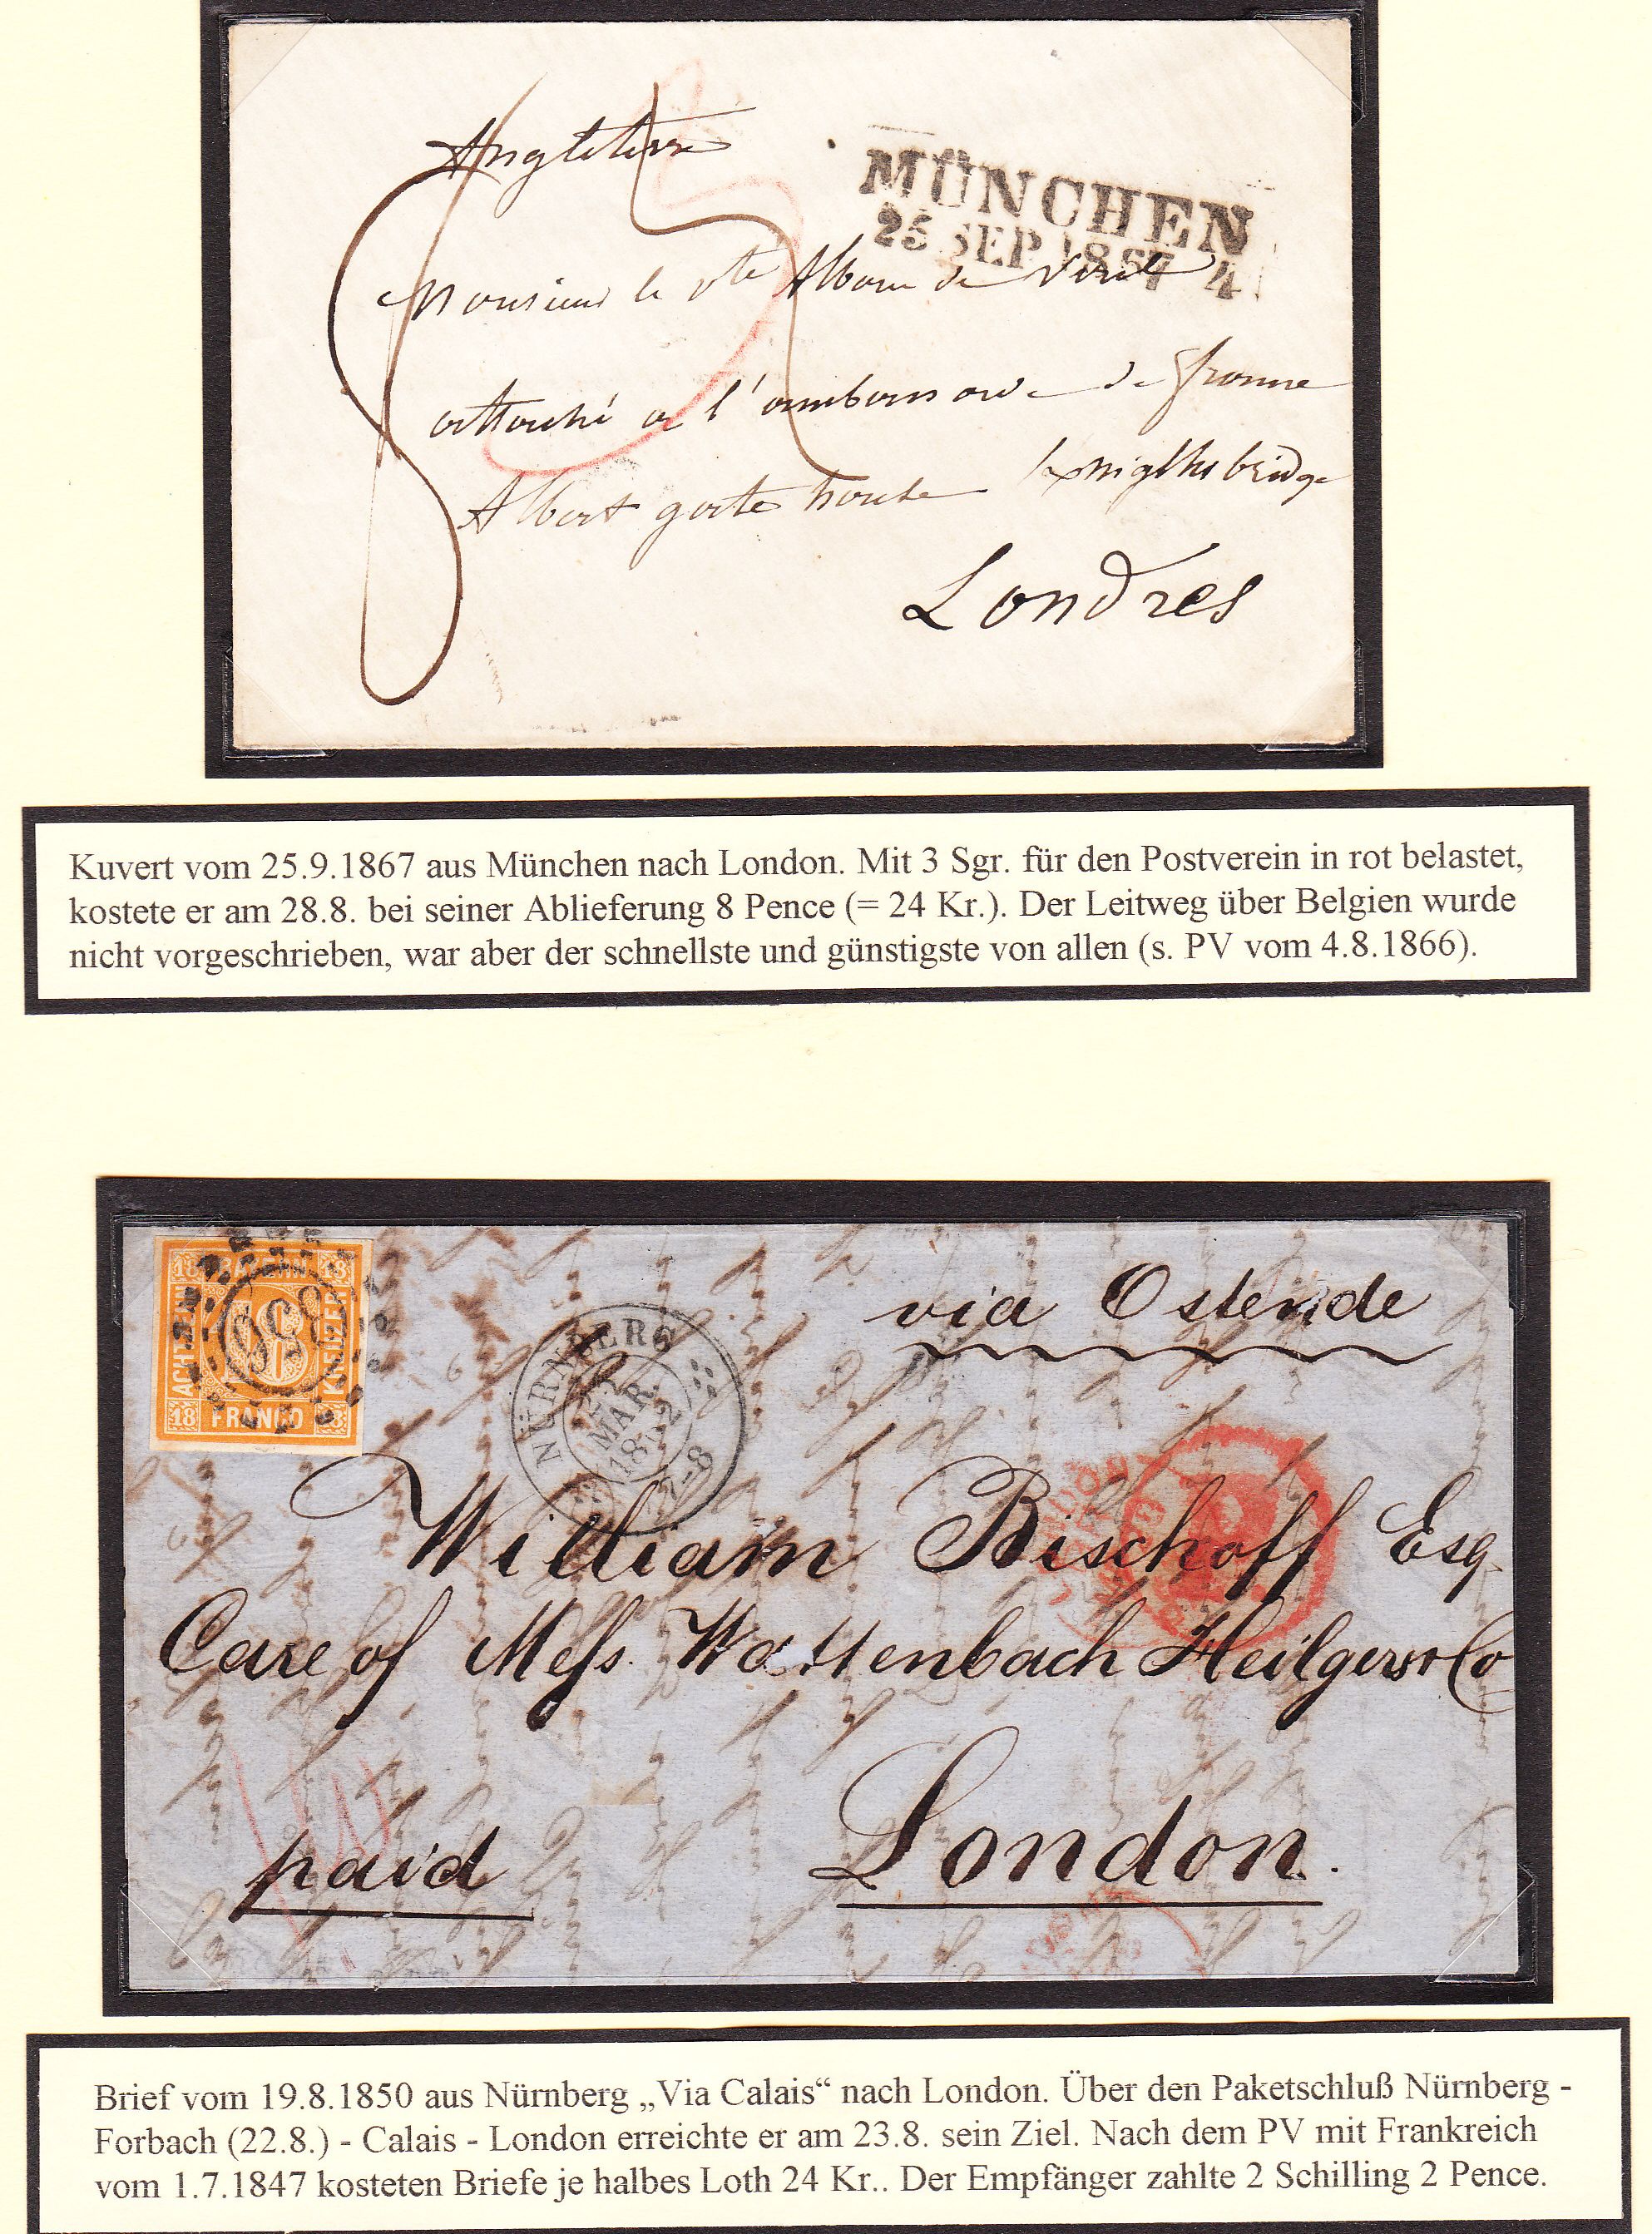 Angleterre
MÜNCHEN
25 SEP 1867 4
Monsieur le Vte Albou de
attaché a l'ambassade de france
Albert gate house Knigthsbridge
Londres
Kuvert vom 25.9.1867 aus München nach London. Mit 3 Sgr. für den Postverein in rot belastet,
kostete er am 28.8. bei seiner Ablieferung 8 Pence (= 24 Kr.). Der Leitweg über Belgien wurde
nicht vorgeschrieben, war aber der schnellste und günstigste von allen (s. PV vom 4.8.1866).
18 18
ACHTZEHN
KREUZER
18 FRANCO 18
NÜRNBERG
MAR.
7-8
via Ostende
William Bischoff Esq.
Care of Mess. Wattenbach Heilgers & Co
paid
London.
Brief vom 19.8.1850 aus Nürnberg „Via Calais“ nach London. Über den Paketschluß Nürnberg -
Forbach (22.8.) - Calais - London erreichte er am 23.8. sein Ziel. Nach dem PV mit Frankreich
vom 1.7.1847 kosteten Briefe je halbes Loth 24 Kr.. Der Empfänger zahlte 2 Schilling 2 Pence.